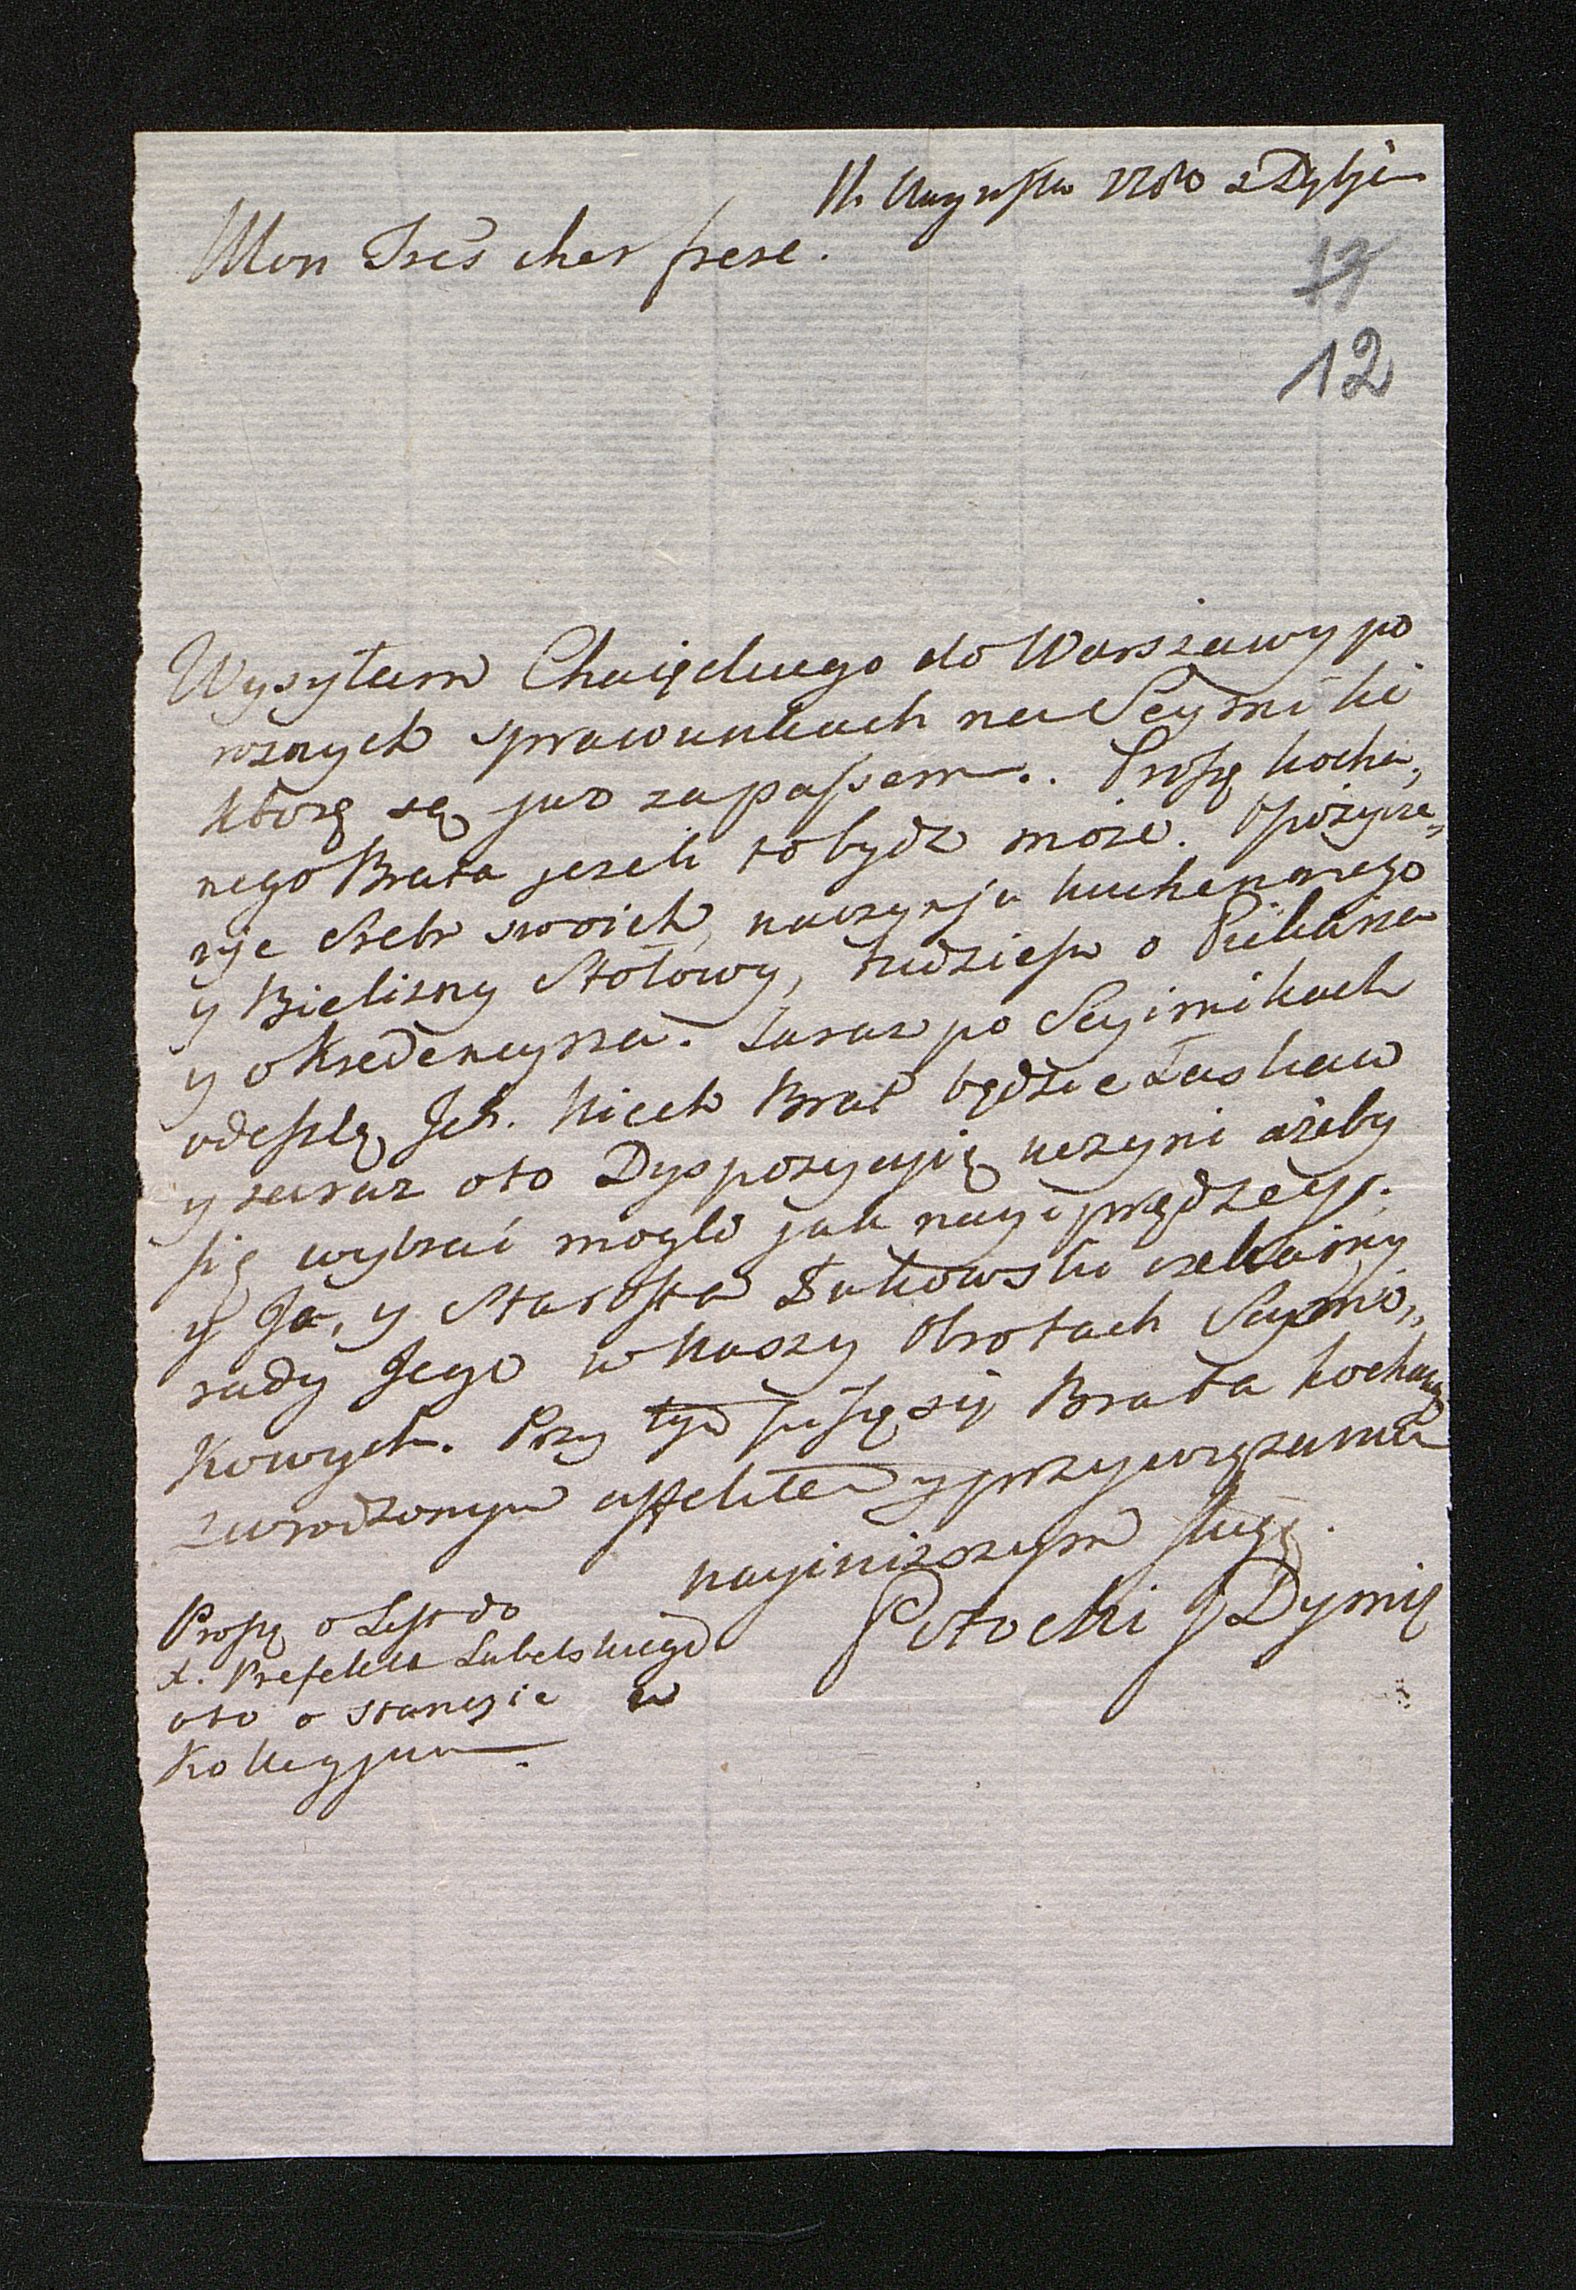 11. Augusta 1780 z Dybji
Mon Tres cher frere.
13
12
Wysyłam Chaięckiego do Warszawy po
roznych sprawunkach na Seymiki
ktorę są juz za passem.. Proszę kocha,,
nego Brata jezeli to bydz może. O pożycze,,
nje Srebr swoich, naczynja kuchennego
y Bielizny Stołowy, tudziesz o Kuharza
y o Kredencyrza. Zaraz po Seyimikach
odeszlę Jch. Niech Brat będzie Łaskaw
y zaraz oto Dyspozycyią uczyni ażeby
się wybrać mogli jak nayiprędzey.
y Ja, y Starosta Łukowski czekaimy
rady Jego w Naszy Obrotach Seymi,,
kowych. Przy tym piszę się Brata kochany
zawrodzonym affektem y przywięzania
nayiniższym sługą.
Potocki J Dymię
Proszę o List do
X. Prefekta Lubelskiego
oto o Stancyie w
Kollegyum.